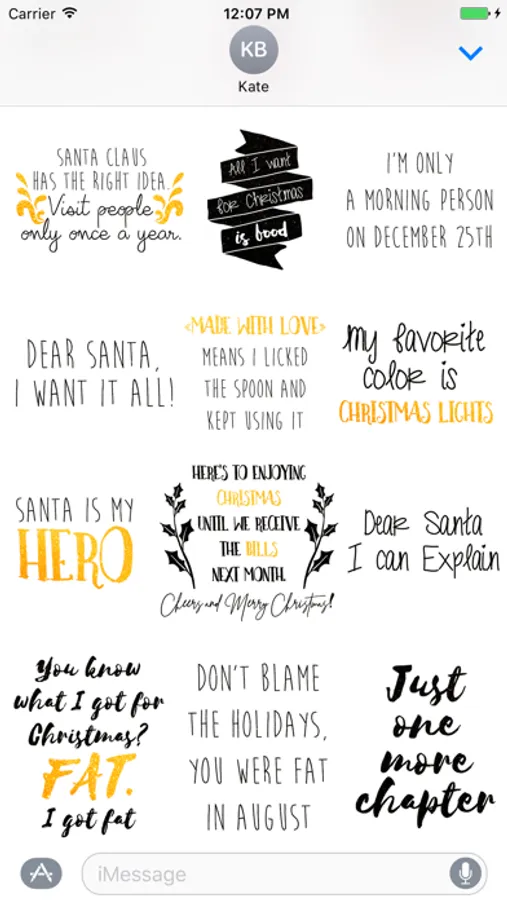 Carrier 12:07 PM
KB
Kate
SANTA CLAUS
HAS THE RIGHT IDEA.
Visit people
only once a year.
All I want
for Christmas
is food
I'M ONLY
A MORNING PERSON
ON DECEMBER 25TH
DEAR SANTA,
I WANT IT ALL!
«MADE WITH LOVE»
MEANS I LICKED
THE SPOON AND
KEPT USING IT
My favorite
color is
CHRISTMAS LIGHTS
SANTA IS MY
HERO
HERE'S TO ENJOYING
CHRISTMAS
UNTIL WE RECEIVE
THE BILLS
NEXT MONTH.
Cheers and Merry Christmas!
Dear Santa
I can Explain
You know
what I got for
Christmas?
FAT.
I got fat
DON'T BLAME
THE HOLIDAYS,
YOU WERE FAT
IN AUGUST
Just
one
more
chapter
iMessage